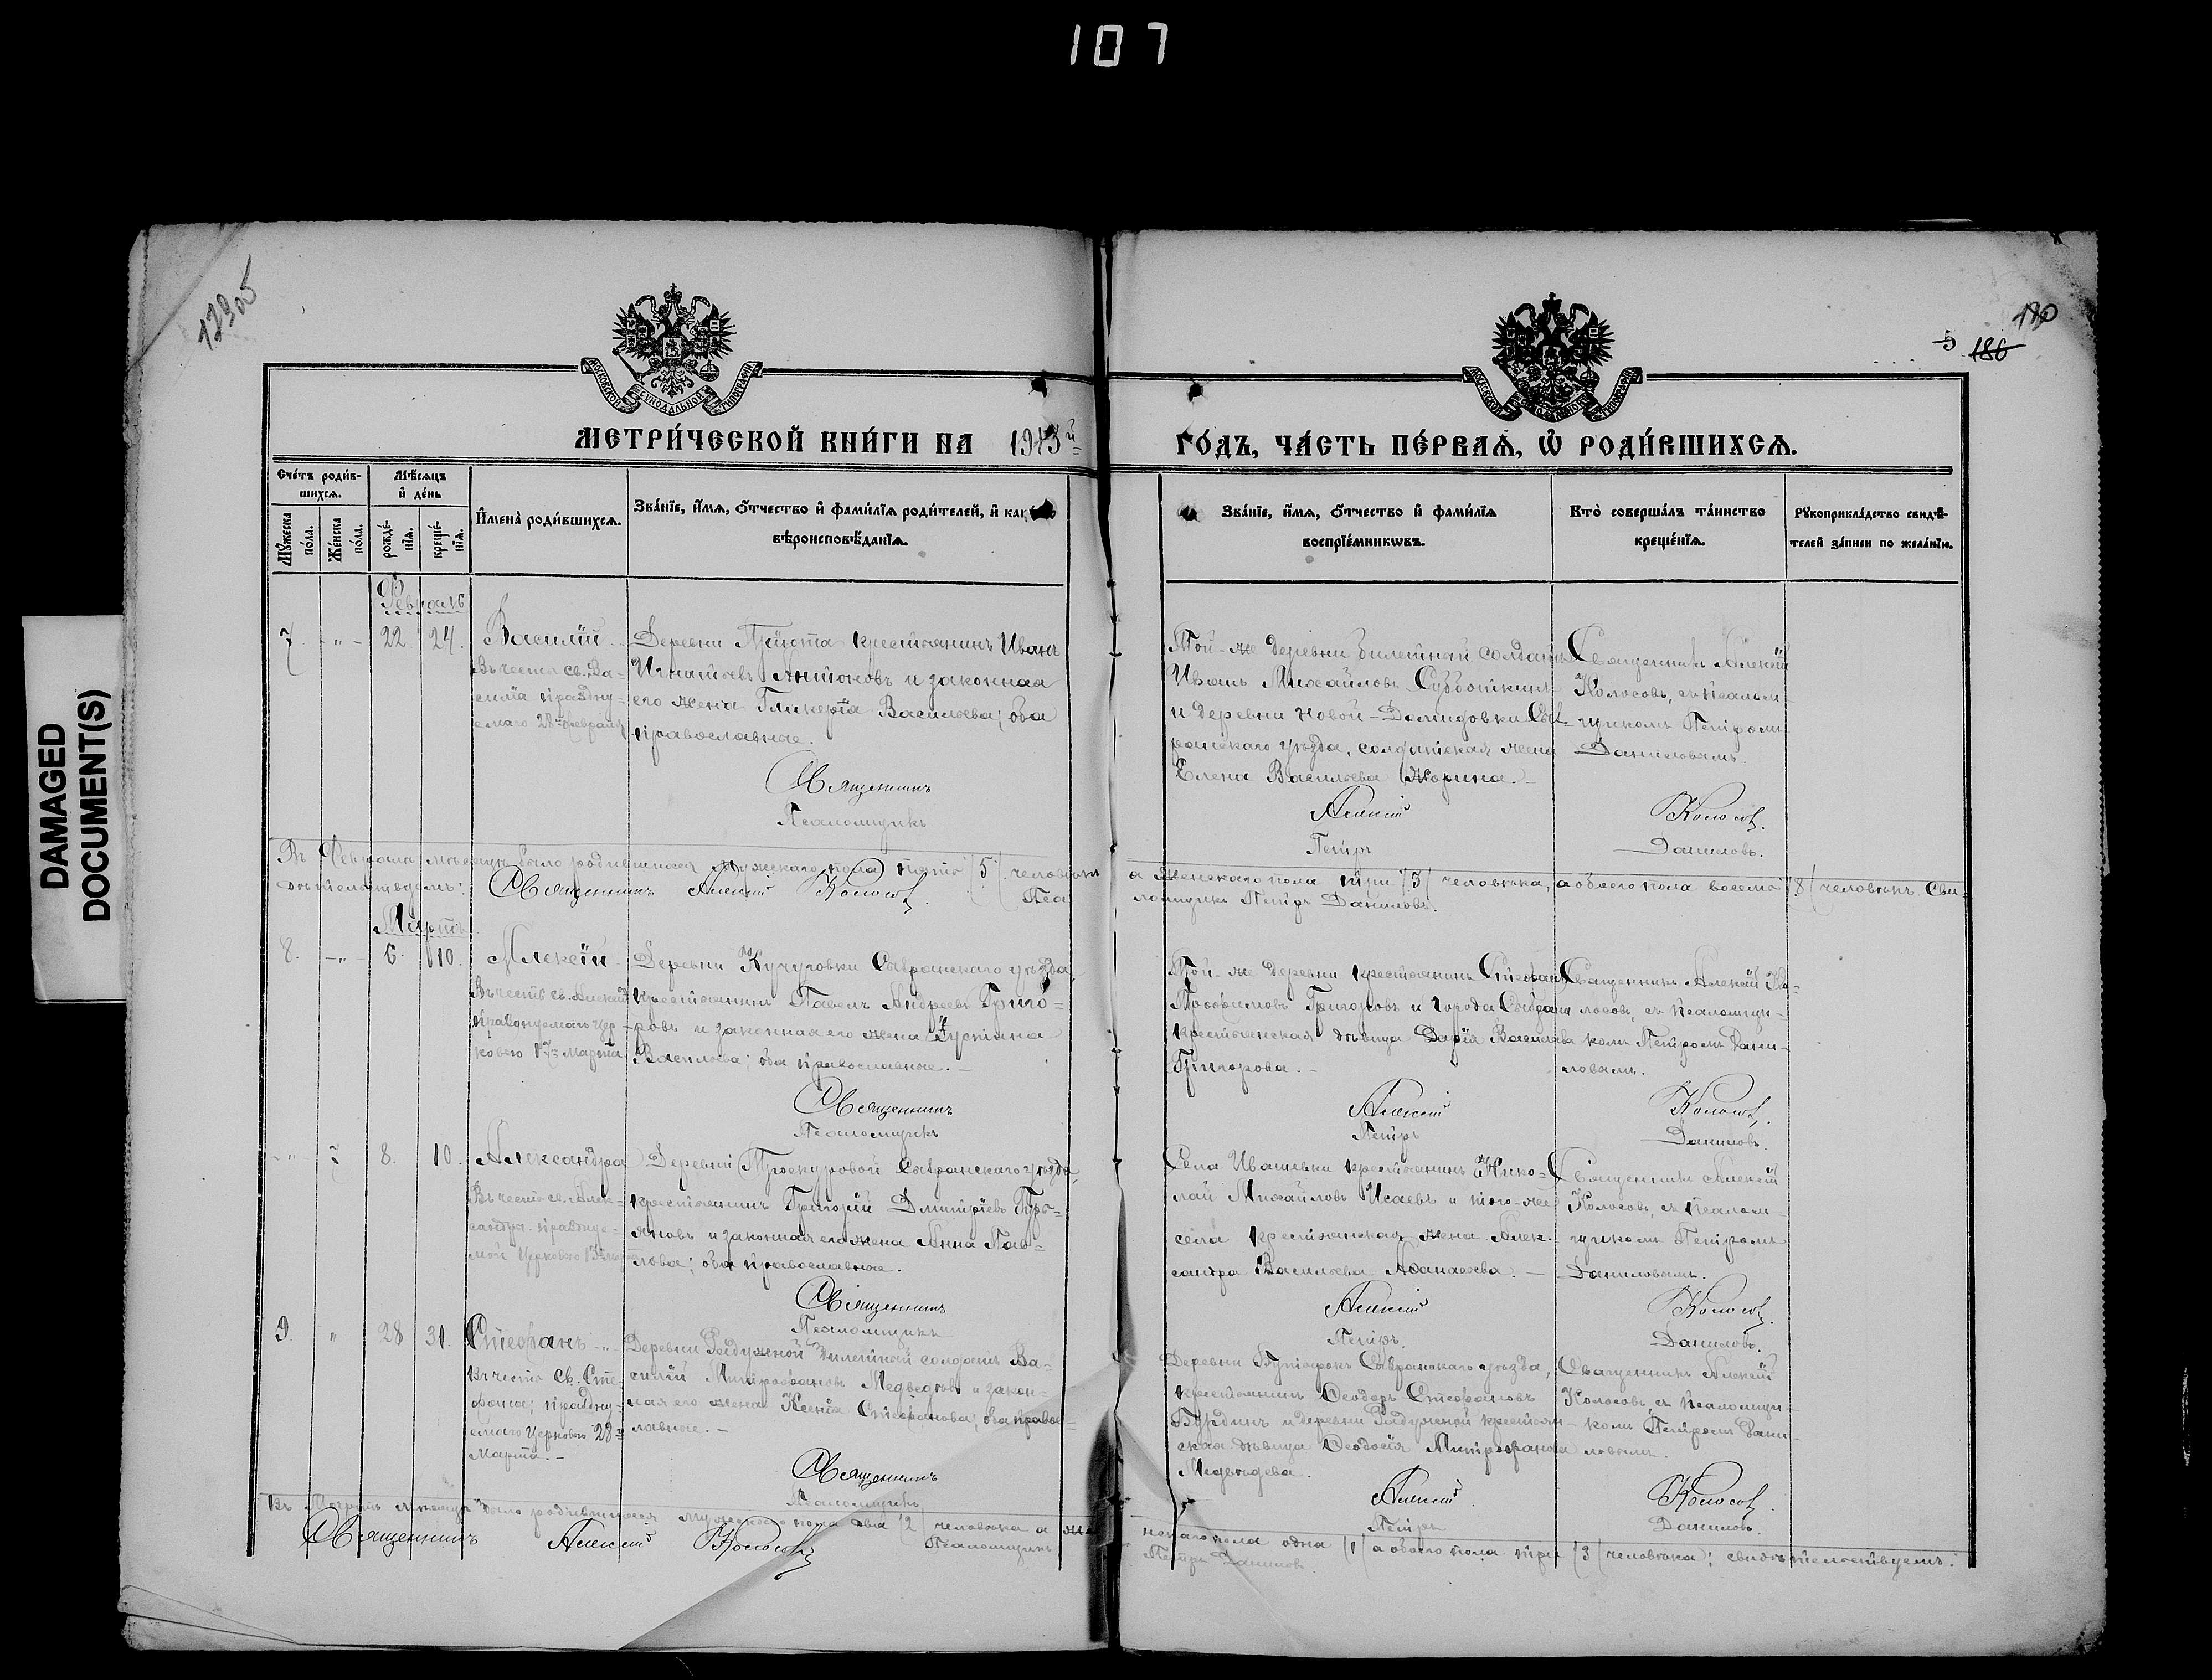 107
DAMAGED
DOCUMENT(S)
12905
180
5 186
МОСКОВСКОЙ СѴНОДАЛЬНОЙ ТИПОГРАФІИ
МОСКОВСКОЙ СѴНОДАЛЬНОЙ ТИПОГРАФІИ
МЕТРИ́ЧЕСКОЙ КНИ́ГИ НА 1913й ГО́ДЪ, ЧА́СТЬ ПЕ́РВАѦ, Ѡ҆ РОДИ́ВШИХСѦ.
Сче́тъ роди́в-
шихсѧ.
Мѣ́сѧцъ
и҆ де́нь
Мꙋ́жеска
по́ла.
Же́нска
по́ла.
рожде́-
нїѧ.
креще́-
нїѧ.
И҆мена̀ роди́вшихсѧ.
Зва́нїе, и҆́мѧ, ѻ҆́тчество и҆ фами́лїѧ роди́телей, и҆ как
вѣроисповѣ́данїѧ.
Зва́нїе, и҆́мѧ, ѻ҆́тчество и҆ фами́лїѧ
воспрїе́мникѡвъ.
Кто̀ соверша́лъ та́инство
креще́нїѧ.
Рꙋкоприкла́дство свидѣ́-
телей за́писи по жела́нїю.
Февраль
7. - " - 22. 24. Василій
Въ честь св. Ва-
силія праздну-
емаго 28го февраля
Деревни крестьянинъ Иванъ
Игнатьевъ Антоновъ и законная
его жена Гликерія Васильева; оба
православные.
Священникъ
Псаломщикъ
Той-же деревни билетный солдатъ
Иванъ Михайловъ Субботкинъ
и деревни Новой-Демидовки Сыз-
ранскаго уѣзда, солдатская жена
Елена Васильева
Алексій
Петръ
Священникъ Алексій
Колосовъ, съ псалом-
щикомъ Петромъ
Даниловымъ.
Колосовъ.
Даниловъ.
Въ Февралѣ мѣсяцѣ было родившихся мужескаго пола пять (5) человѣкъ а женскаго пола три (3) человѣка, а обоего пола восемь (8) человѣкъ. Сви-
дѣтельствуемъ: Священникъ Алексій Колосовъ. Псаломщикъ Петръ Даниловъ.
Мартъ.
8. - " - 6. 10. Алексій
Въ честь св. Алексія
празднуемаго цер-
ковію 17го марта
Деревни Кучуговки Сызранскаго уѣзда,
крестьянинъ Павелъ Андреевъ Григо-
ровъ и законная его жена Іустина
Васильева; оба православные. -
Священникъ
Псаломщикъ
Той-же деревни крестьянинъ Стефанъ
Трофимовъ Григоровъ и города Сызрани
крестьянская дѣвица Дарія Васильева
Григорова. -
Алексій
Петръ
Священникъ Алексій Ко-
лосовъ, съ псаломщи-
комъ Петромъ Дани-
ловымъ.
Колосовъ.
Даниловъ.
- " - 8. 10. Александра
Въ честь св. Алек-
сандры празднуе-
мой церковію
Деревни Сызранскаго уѣзда,
крестьянинъ Григорій Дмитріевъ Гурь-
яновъ и законная его жена Анна Пав-
лова; оба православные.
Священникъ
Псаломщикъ
Села Ивашевки крестьянинъ Нико-
лай Михайловъ Исаевъ и того-же
села крестьянская жена Алек-
сандра Васильева Аѳанасьева. -
Алексій
Петръ.
Священникъ Алексій
Колосовъ, съ псалом-
щикомъ Петромъ
Даниловымъ.
Колосовъ.
Даниловъ.
9. " 28 31. Стефанъ - " -
Въ честь св. Сте-
фана; праздну-
емаго церковію 28го
марта. -
Деревни Радужной билетный солдатъ Ва-
силій Митрофановъ Медвѣдевъ и закон-
ная его жена Ксенія Стефанова; оба право-
лавные. -
Священникъ
Псаломщикъ
Деревни Бутырокъ Сызранскаго уѣзда,
крестьянинъ Ѳеодоръ Стефановъ
Бурдинъ и деревни Радужной крестьян-
ская дѣвица Ѳеодосія Митрофанова
Медвѣдева.
Алексій
Петръ
Священникъ Алексій
Колосовъ, съ псаломщи-
комъ Петромъ Дани-
ловымъ.
Колосовъ.
Даниловъ.
Въ Мартѣ мѣсяцѣ было родившихся мужескаго пола два (2) человѣка а же нскаго пола одна (1) а обоего пола три (3) человѣка; свидѣтельствуемъ:
Священникъ Алексій Колосовъ Псаломщикъ Петръ Даниловъ.